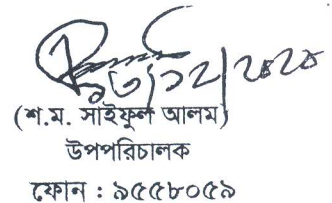 ১৩/১২/২০২০
(শ.ম. সাইফুল আলম)
উপপরিচালক
ফোন : ৯৫৫৮০৫৯